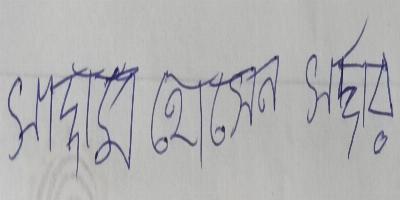 সাদ্দাম হোসেন সর্দার